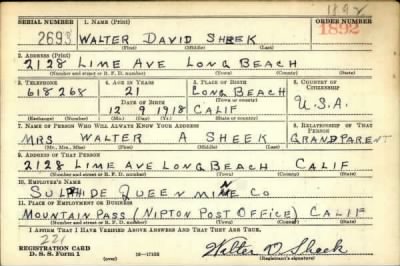 1892
SERIAL NUMBER 1. NAME (Print) ORDER NUMBER
2693 WALTER DAVID SHEEK 1892
(First) (Middle) (Last)
2. ADDRESS (Print)
2128 LIME AVE LONG BEACH
(Number and street or R. F. D. number) (Town) (County) (State)
3. TELEPHONE 4. AGE IN YEARS 5. PLACE OF BIRTH 6. COUNTRY OF CITIZENSHIP
618268 21 LONG BEACH
DATE OF BIRTH (Town or county) U.S.A.
12 9 1918 CALIF
(Exchange) (Number) (Mo.) (Day) (Yr.) (State or country)
7. NAME OF PERSON WHO WILL ALWAYS KNOW YOUR ADDRESS 8. RELATIONSHIP OF THAT PERSON
MRS WALTER A SHEEK GRANDPARENT
(Mr., Mrs., Miss) (First) (Middle) (Last)
9. ADDRESS OF THAT PERSON
2128 LIME AVE LONG BEACH CALIF
(Number and street or R. F. D. number) (Town) (County) (State)
10. EMPLOYER'S NAME
SULPHIDE QUEEN MINE CO
11. PLACE OF EMPLOYMENT OR BUSINESS
MOUNTAIN PASS (NIPTON POST OFFICE) CALIF
(Number and street or R. F. D. number) (Town) (County) (State)
I AFFIRM THAT I HAVE VERIFIED ABOVE ANSWERS AND THAT THEY ARE TRUE.
221
REGISTRATION CARD
D. S. S. Form 1 (over) 16—17105 Walter D. Sheek
(Registrant's signature)